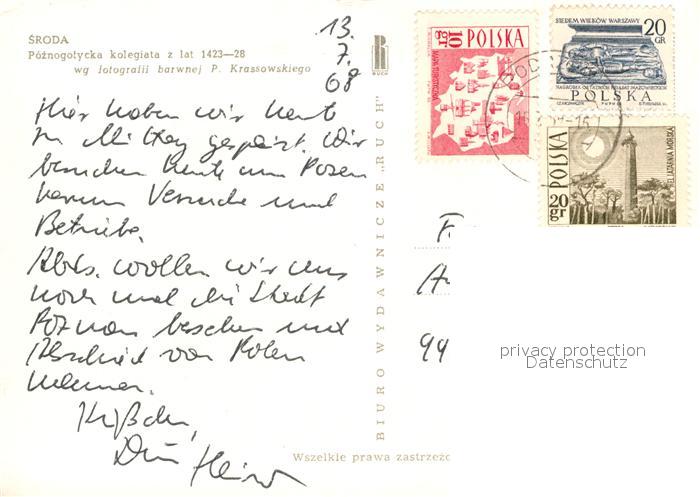 ŚRODA
Późnogotycka kolegiata z lat 1423—28
wg fotografii barwnej P. Krassowskiego
RUCH
13.
7.
68
Hier haben wir heute
zu Mittag gespeist. Wir
besuchen heute um Posen
herum Versuche und
Betriebe.
Abds. wollen wir uns
noch mal die Stadt
Poznan besehen und
Abschied von Polen
nehmen.
Küßchen,
Dein Heinz
BIURO WYDAWNICZE „RUCH"
Wszelkie prawa zastrzeżo
10 gr POLSKA
SIEDEM WIEKÓW WARSZAWY
20 GR
POLSKA
POLSKA
20 gr
F.
A
44
privacy protection
Datenschutz